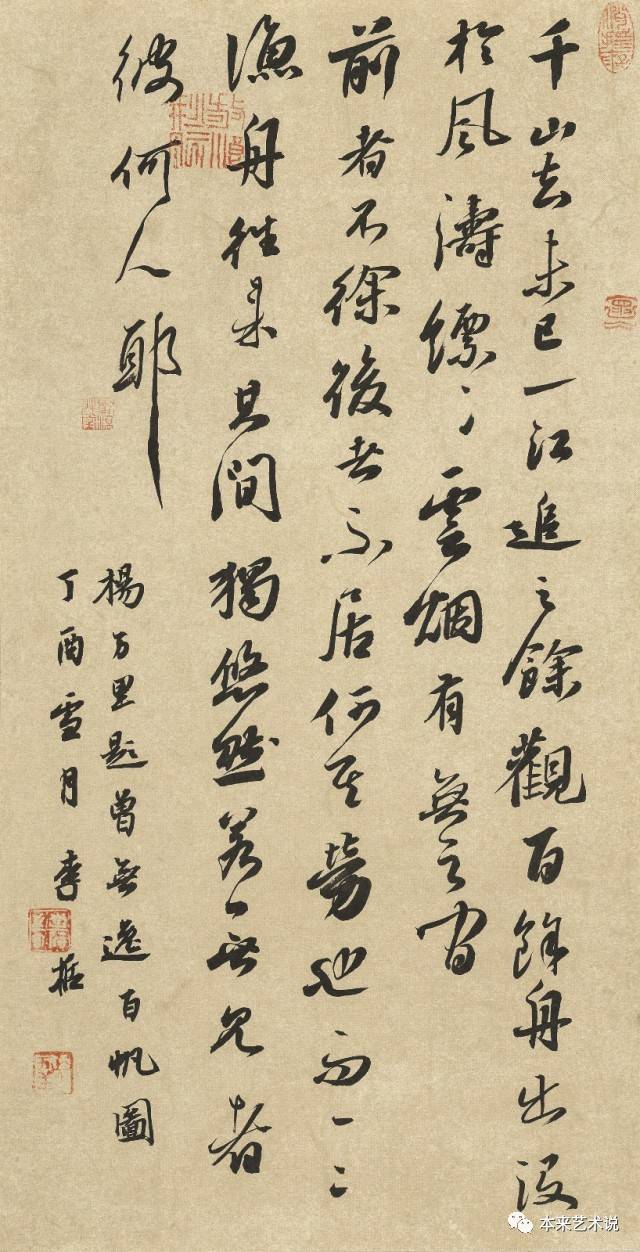 千山去未已一江追之餘觀百餘舟出没
於風濤縹〻雲烟有無之間
前者不徐後者不居何其勞也而一二
漁舟往來其間獨悠然若一無見者
彼何人耶
楊万里題曾無逸百帆圖
丁酉雪月李
本来艺术说